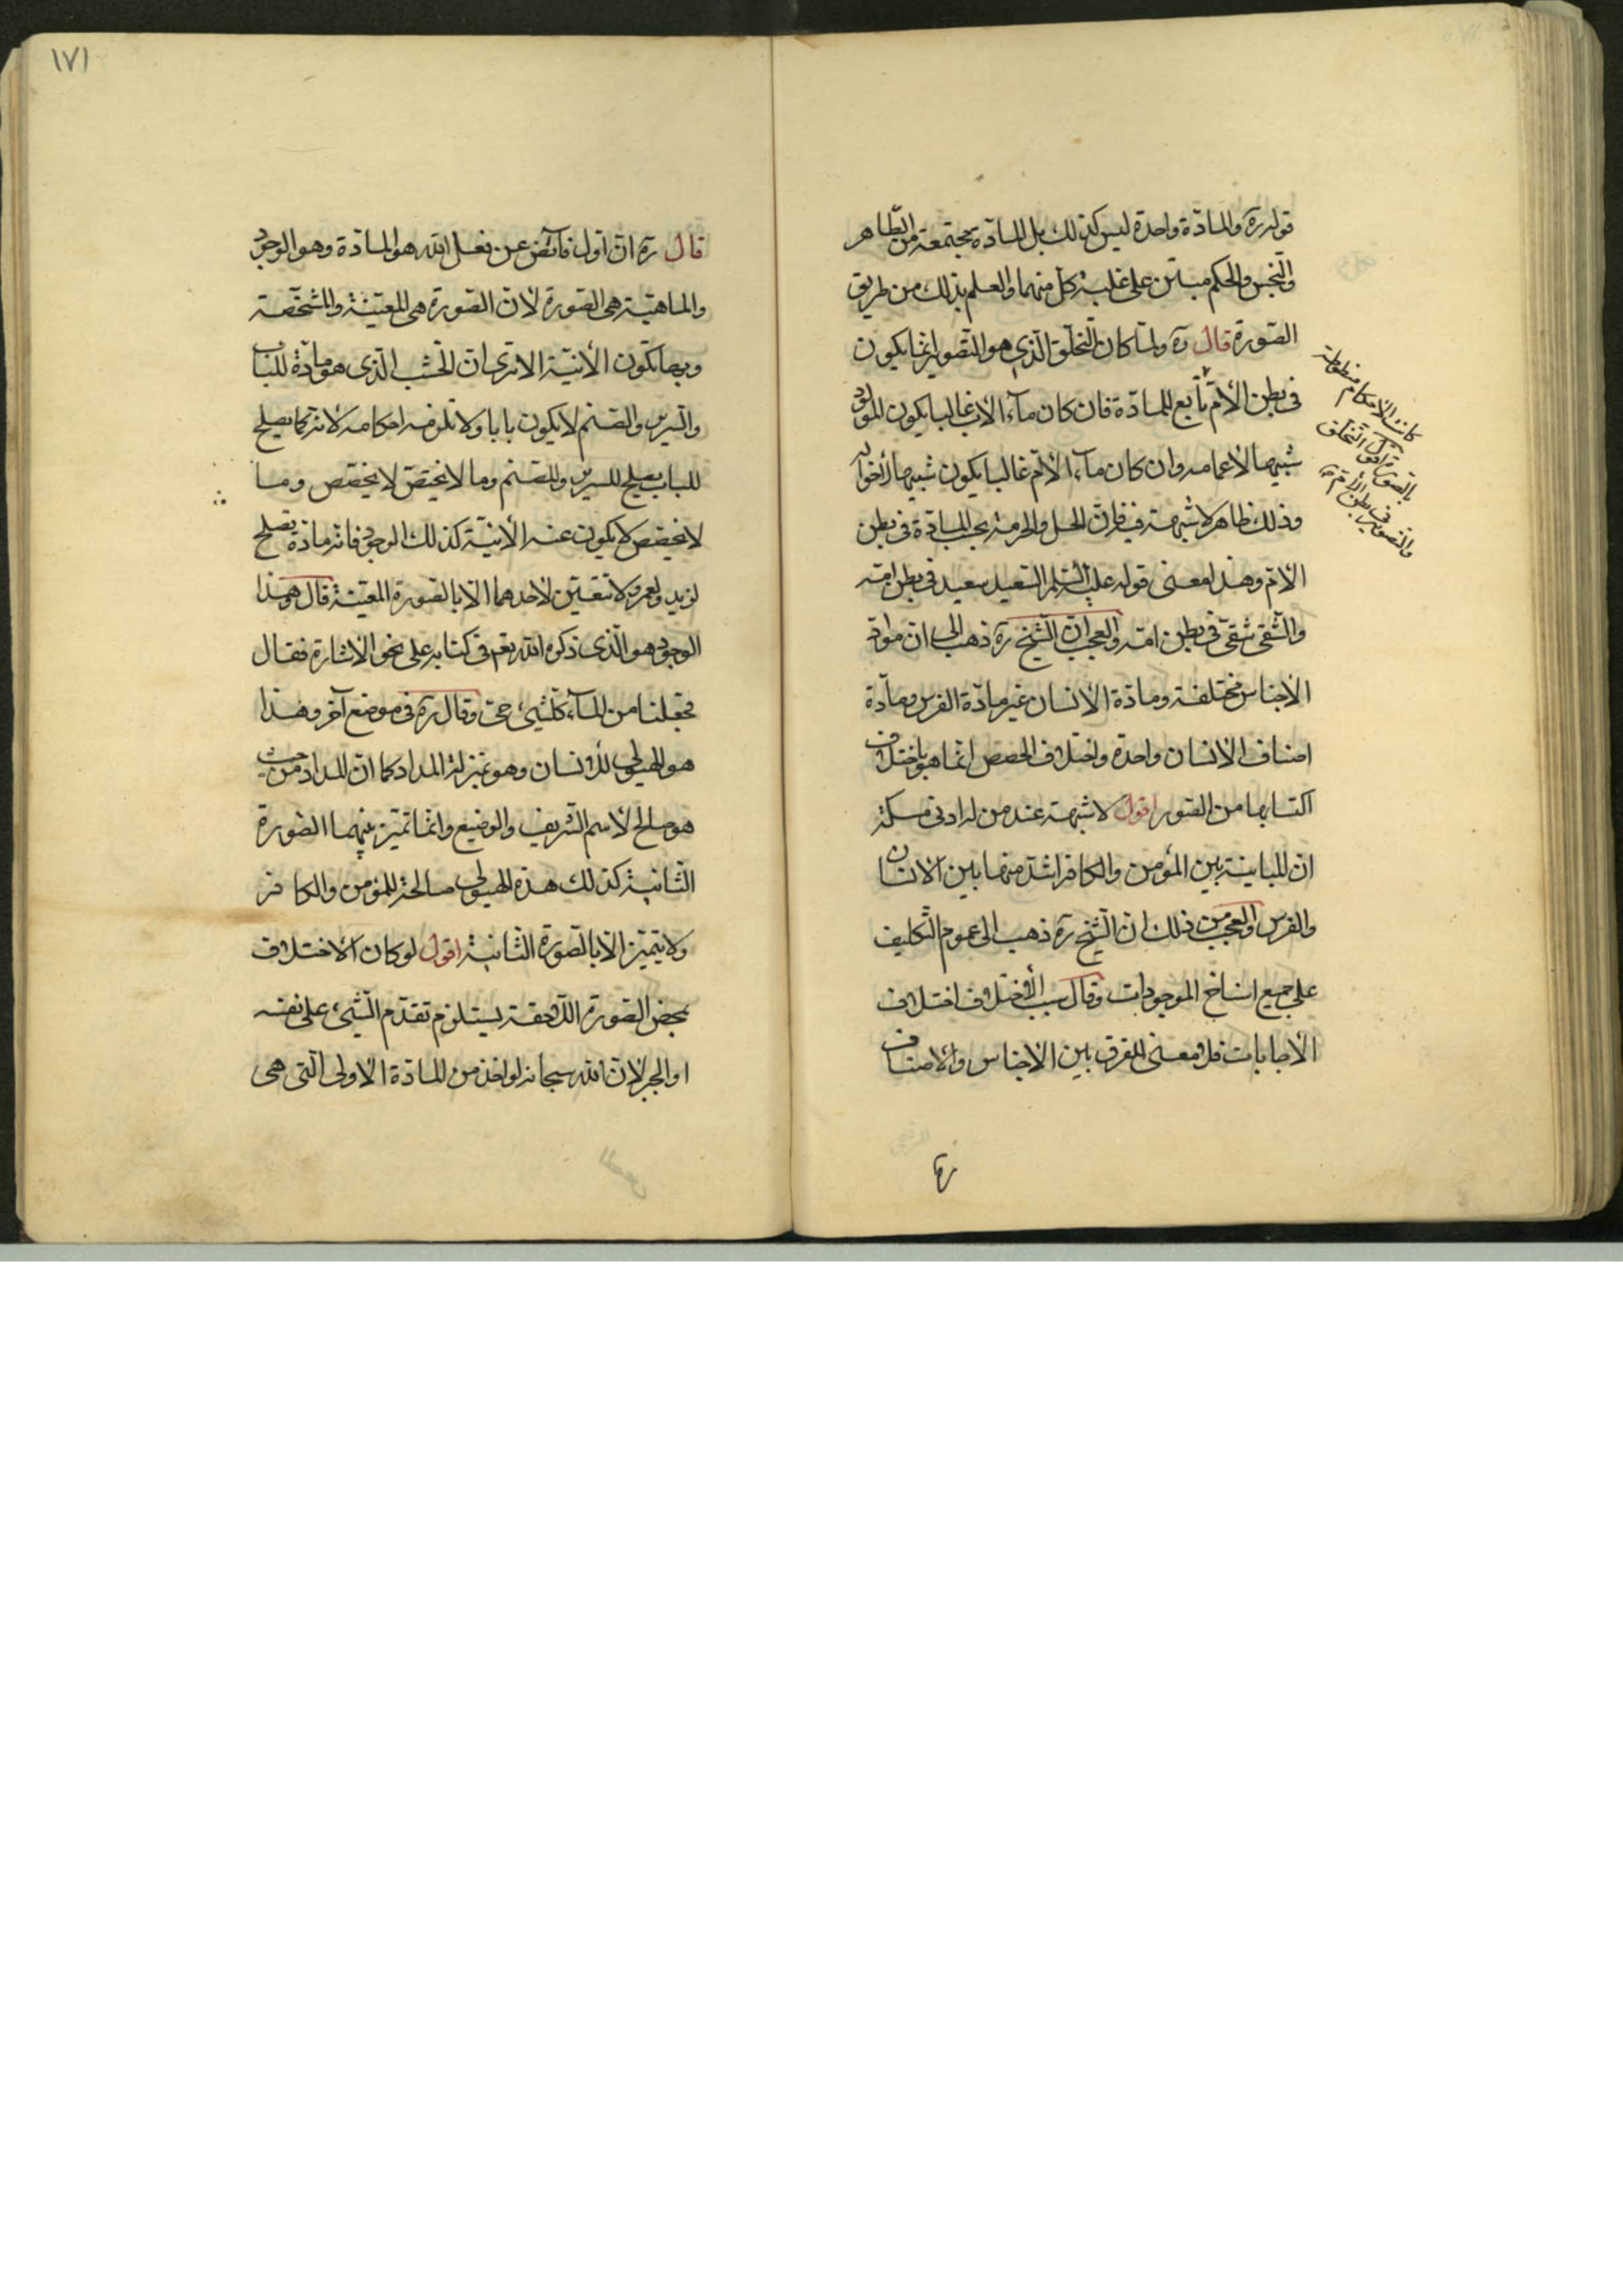 قوله ره والمادّة واحدة ليس كذلك بل المادّة مجتمعة من الطّاهر
والنّجس والحكم مبتن على غلبة كلّ منهما والعلم بذلك من طريق
الصّورة قال ره ولمّا كان التخلّق الّذي هو التصوير انّما يكون
في بطن الأمّ تابع للمادّة فان كان ماء الاب غالبا يكون المولود
شبيها لأعمامه وان كان ماء الأمّ غالبا يكون شبيها لأخواله
وذلك ظاهر لا شبهة فيه فارق الحل والحرمة بحسب المادّة في بطن
الامّ وهذا معنى قوله عليه السّلم السّعيد سعيد في بطن امّه
والشّقي شقيّ في بطن امّه والعجب انّ الشّيخ ره ذهب الى ان موادّ
الاجناس مختلفة ومادّة الأنسان غير مادّة الفرس ومادّة
اصناف الأنسان واحدة واختلاف الحصص انّما هو باختلاف
اكتسابها من الصّور اقول لا شبهة عند من له ادنى مسكة
انّ المباينة بين المؤمن والكافر اشدّ منها بين الانسان
والفرس والعجب من ذلك انّ الشّيخ ره ذهب الى عموم التّكليف
على جميع اسناخ الموجودات وقال سبب الأختلاف اختلاف
الأجابات فلا معنى للفرق بين الاجناس والاصناف
كانت الأحكام منوطة
بالصورة قال التخلق
والتصوير في بطن الأم
قال
١٧١
قال ره انّ اوّل فائض عن فعل الله هو المادّة وهو الوجود
والماهيّة هي الصّورة لأنّ الصّورة هي المعيّنة والمشخّصة
وبها تكون الأنيّة الا ترى انّ الخشب الّذي هو مادّة للباب
والسّرير والصّنم لا يكون بابا ولا تلزمه احكامه لأنّه كما يصلح
للباب يصلح للسرير وللصّنم وما لا يختصّ لا يتخصّص وما
لا يتخصّص لا يكون عنه الأنيّة كذلك الوجود فانّه مادّة تصلح
لزيد ولعمرو ولا تتعيّن لأحدهما الّا بالصّورة المعيّنة قال وهذا
الوجود هو الّذي ذكره الله تعم في كتابه على نحو الأشارة فقال
فجعلنا من الماء كلّشيء حيّ وقال ره في موضع آخر وهذا
هو الهيولى للأنسان وهو بمنزلة المداد كما انّ المداد من حيث
هو صالح لأسم الشّريف والوضيع وانّما تميّز بينهما الصّورة
الثّانية كذلك هذه الهيولى صالحة للمؤمن والكافر
ولا يتميّز الّا بالصّورة الثّانية اقول لو كان الاختلاف
بمحض الصّورة اللّاحقة يستلزم تقدّم الشّيء على نفسه
او الجبر لأنّ الله سبحانه لو اخذ من المادّة الأولى الّتي هي